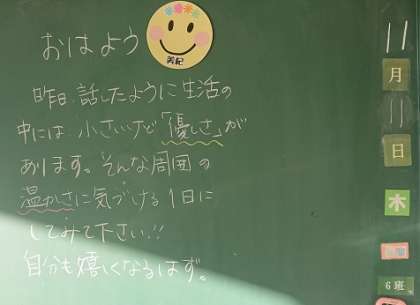 おはよう
昨日、話したように生活の
中には 小さいけど「優しさ」が
あります。そんな周囲の
温かさに気づける1日に
してみて下さい!!
自分も嬉しくなるはず。
11
月
11
日
木
6班